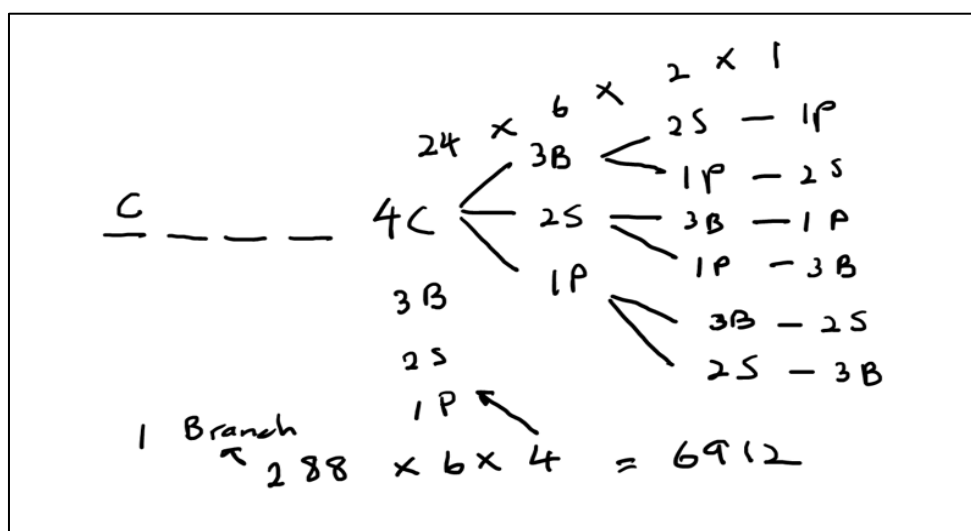 24 × 6 × 2 × 1
C 4C 3B 2S – 1P
1P – 2S
2S 3B – 1P
1P – 3B
1P 3B – 2S
2S – 3B
3B
2S
1P
1 Branch
288 × 6 × 4 = 6912